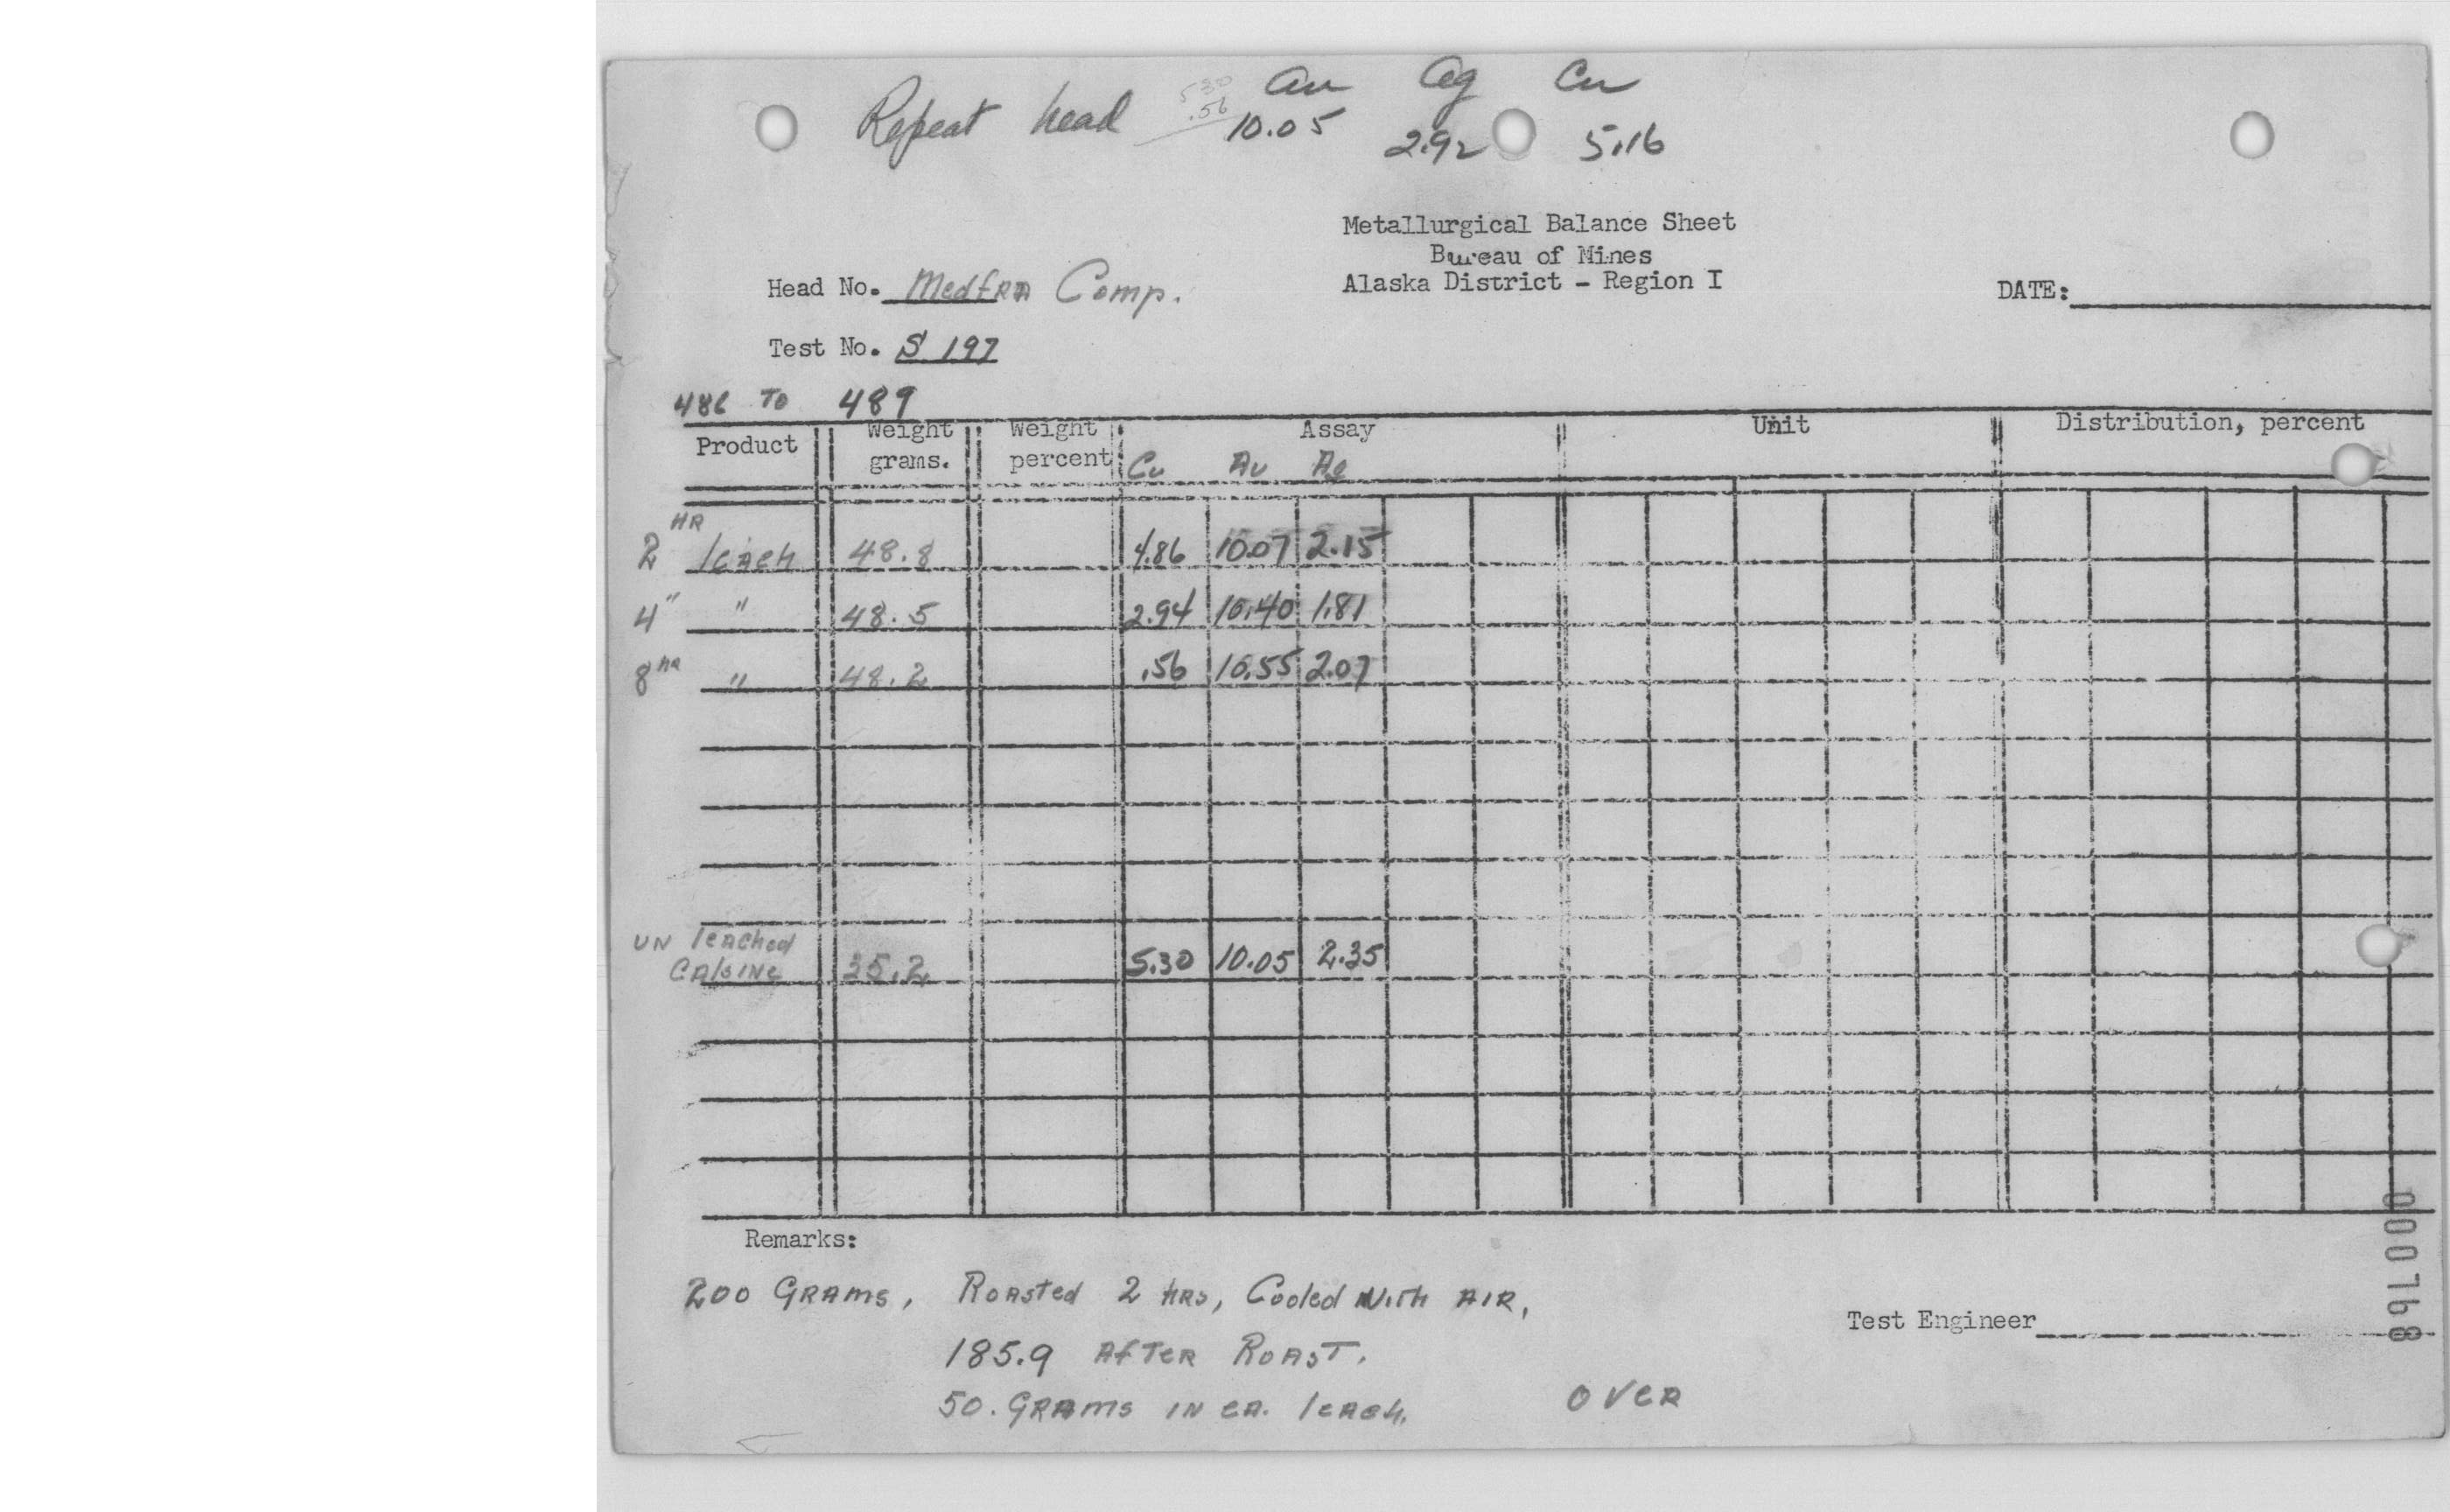 Au Ag Cu
Repeat head 5.30 .56 10.05 2.92 5.16
Metallurgical Balance Sheet
Bureau of Mines
Alaska District - Region I
Head No. Medfra Comp.
DATE:
Test No. S 197
486 TO 489
Product Weight grams. Weight percent Assay Unit Distribution, percent
Cu Au Ag
2 HR leach 48.8 4.86 10.07 2.15
4 " " 48.5 2.94 10.40 1.81
8 HR " 48.2 .56 10.55 2.07
UN leached
CAlsINe 35.2 5.30 10.05 2.35
Remarks:
200 GRAMS, ROASTed 2 HRS, Cooled With AIR,
Test Engineer
185.9 AfTeR ROAST.
50. GRAMS IN eA. leAch.
OVeR
000768